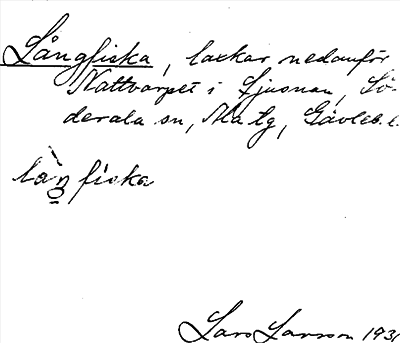 Långfiska, laxkar nedanför
Nattvarpet i Ljusnan, Sö-
derala sn, Ma tg, Gävleb. l.
làŋfiska
Lars Larsson 1931